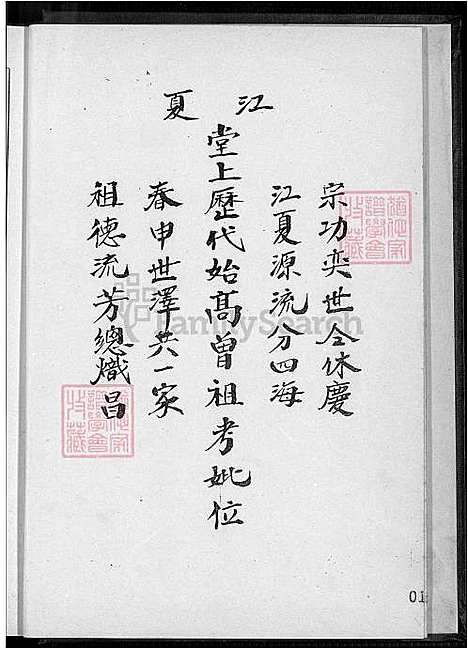 江夏
宗功奕世仝休慶
江夏源流分四海
堂上歷代始高曾祖考妣位
春申世澤共一家
祖德流芳總熾昌
FamilySearch
01